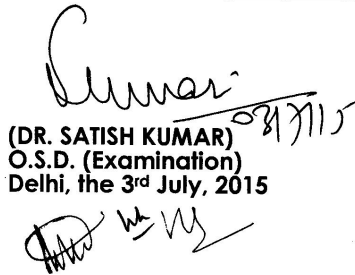 Kumar
03/7/15
(DR. SATISH KUMAR)
O.S.D. (Examination)
Delhi, the 3rd July, 2015